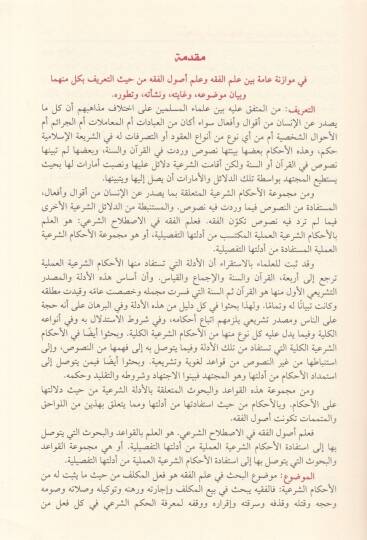 مقدمة
في موازنة عامة بين علم الفقه وعلم أصول الفقه من حيث التعريف بكل منهما
وبيان موضوعه، وغايته، ونشأته، وتطوره.
التعريف: من المتفق عليه بين علماء المسلمين على اختلاف مذاهبهم أن كل ما
يصدر عن الإنسان من أقوال وأفعال سواء أكان من العبادات أم المعاملات أم الجرائم أم
الأحوال الشخصية أم من أي نوع من أنواع العقود أو التصرفات له في الشريعة الإسلامية
حكم، وهذه الأحكام بعضها بينتها نصوص وردت في القرآن والسنة، وبعضها لم تبينها
نصوص في القرآن أو السنة ولكن أقامت الشريعة دلائل عليها ونصبت أمارات لها بحيث
يستطيع المجتهد بواسطة تلك الدلائل والأمارات أن يصل إليها ويتبينها.
ومن مجموعة الأحكام الشرعية المتعلقة بما يصدر عن الإنسان من أقوال وأفعال،
المستفادة من النصوص فيما وردت فيه نصوص، والمستنبطة من الدلائل الشرعية الأخرى
فيما لم ترد فيه نصوص تكوّن الفقه. فعلم الفقه في الاصطلاح الشرعي: هو العلم
بالأحكام الشرعية العملية المكتسب من أدلتها التفصيلية، أو هو مجموعة الأحكام الشرعية
العملية المستفادة من أدلتها التفصيلية.
وقد ثبت للعلماء بالاستقراء أن الأدلة التي تستفاد منها الأحكام الشرعية العملية
ترجع إلى أربعة، القرآن والسنة والإجماع والقياس. وأن أساس هذه الأدلة والمصدر
التشريعي الأول منها هو القرآن ثم السنة التي فسرت مجمله وخصصت عامّه وقيدت مطلقه
وكانت تبيانًا له وتمامًا. ولهذا بحثوا في كل دليل من هذه الأدلة وفي البرهان على أنه حجة
على الناس ومصدر تشريعي يلزمهم اتباع أحكامه، وفي شروط الاستدلال به وفي أنواعه
الكلية وفيما يدل عليه كل نوع منها من الأحكام الشرعية الكلية. وبحثوا أيضًا في الأحكام
الشرعية الكلية التي تستفاد من تلك الأدلة وفيما يتوصل به إلى فهمها من النصوص، وإلى
استنباطها من غير النصوص من قواعد لغوية وتشريعية. وبحثوا أيضًا فيمن يتوصل إلى
استمداد الأحكام من أدلتها وهو المجتهد فبينوا الاجتهاد وشروطه والتقليد وحكمه.
ومن مجموعة هذه القواعد والبحوث المتعلقة بالأدلة الشرعية من حيث دلالتها
على الأحكام. وبالأحكام من حيث استفادتها من أدلتها ومما يتعلق بهذين من اللواحق
والمتممات تكونت أصول الفقه.
فعلم أصول الفقه في الاصطلاح الشرعي. هو العلم بالقواعد والبحوث التي يتوصل
بها إلى استفادة الأحكام الشرعية العملية من أدلتها التفصيلية. أو هي مجموعة القواعد
والبحوث التي يتوصل بها إلى استفادة الأحكام الشرعية العملية من أدلتها التفصيلية.
الموضوع: موضوع البحث في علم الفقه هو فعل المكلف من حيث ما يثبت له من
الأحكام الشرعية: فالفقيه يبحث في بيع المكلف وإجارته ورهنه وتوكيله وصلاته وصومه
وحجه وقتله وقذفه وسرقته وإقراره ووقفه لمعرفة الحكم الشرعي في كل فعل من